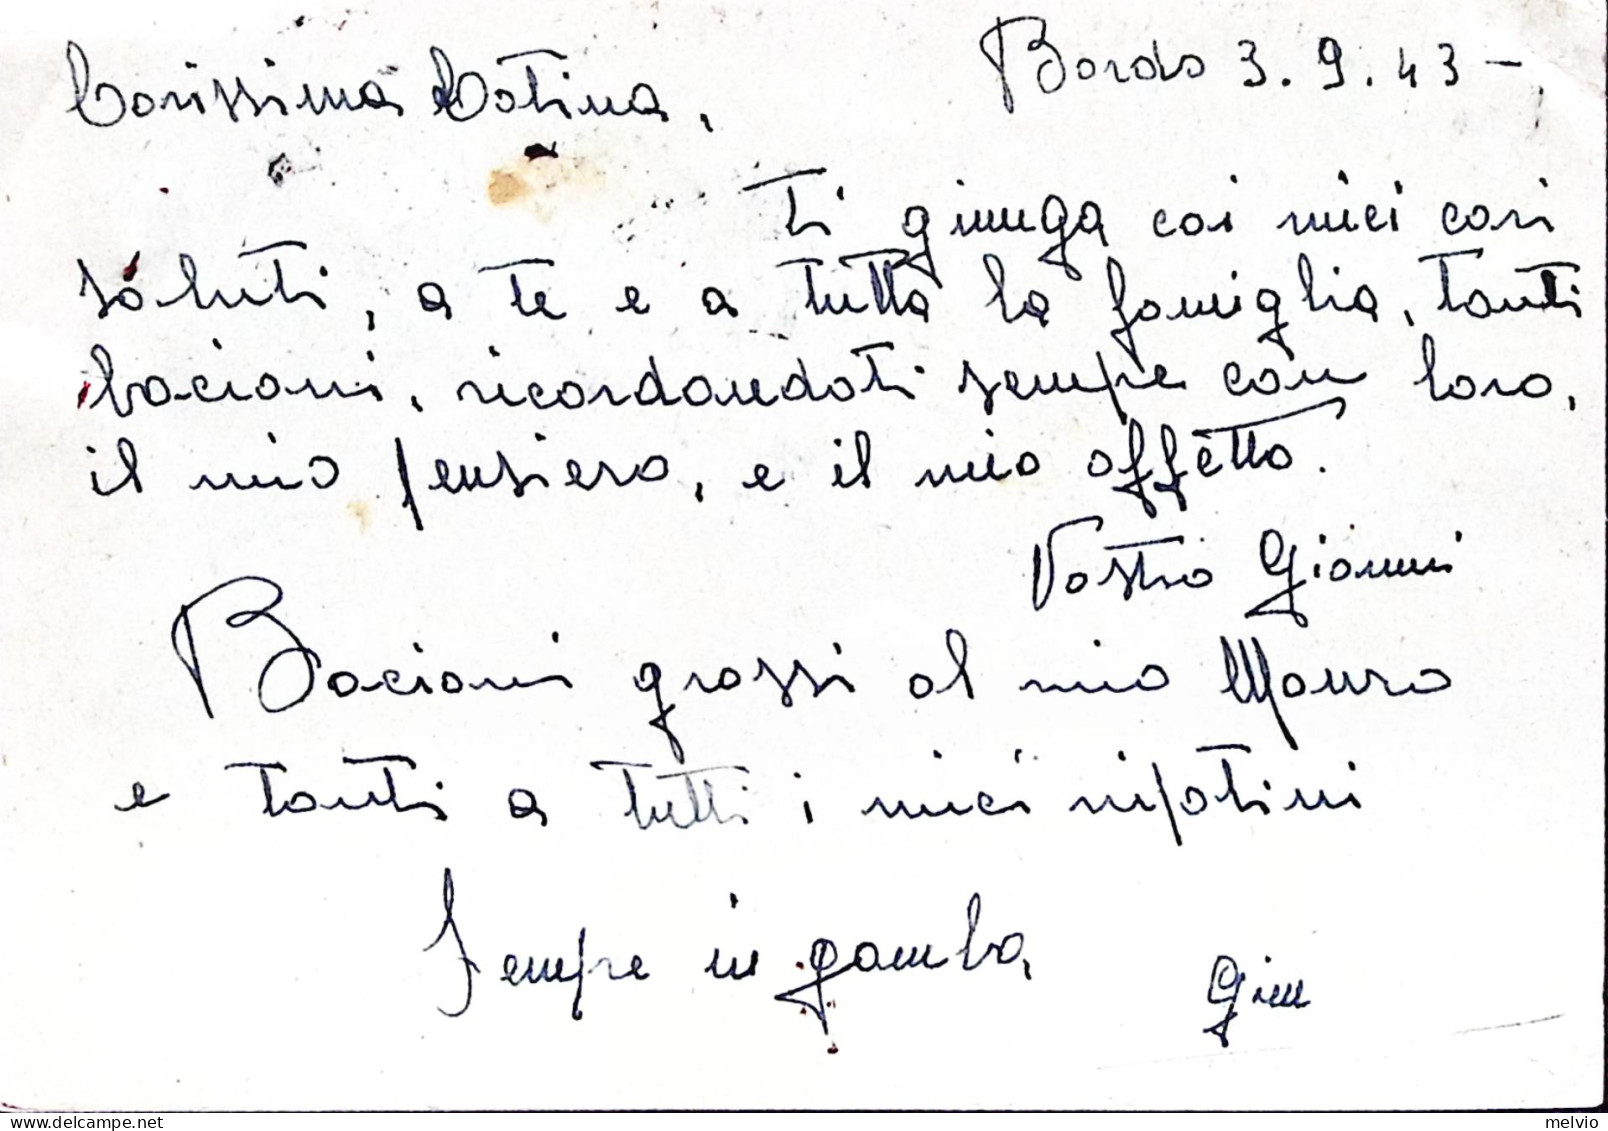 Bordo 3.9.43-
Carissima Cotina,
Ti giunga coi miei cari
saluti, a te e a tutta la famiglia, tanti
bacioni, ricordandoti sempre con loro,
il mio pensiero, e il mio affetto.
Vostro Gianni
Bacioni grossi al mio Mauro
e tanti a tutti i miei nipotini
Sempre in gamba,
Gim
melvio